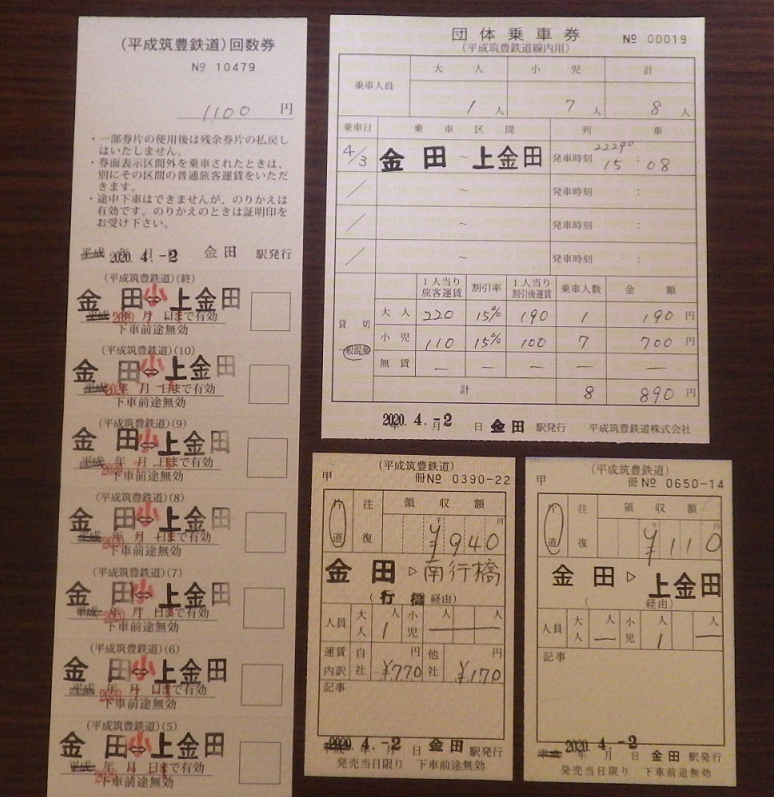 (平成筑豊鉄道)回数券
№ 10479
1,100 円
・一部券片の使用後は残余券片の払戻し
はいたしません。
・券面表示区間外を乗車されたときは、
別にその区間の普通旅客運賃をいただ
きます。
・途中下車はできませんが、のりかえは
有効です。のりかえのときは証明印を
お受け下さい。
平成 年 月 日 2020. 4. -2 金田 駅発行
(平成筑豊鉄道)(終)
金田⇔上金田 小
平成 年 月 日まで有効
下車前途無効
(平成筑豊鉄道)(10)
金田⇔上金田 小
平成 年 月 日まで有効
下車前途無効
(平成筑豊鉄道)(9)
金田⇔上金田 小
平成 年 月 日まで有効
下車前途無効
(平成筑豊鉄道)(8)
金田⇔上金田 小
平成 年 月 日まで有効
下車前途無効
(平成筑豊鉄道)(7)
金田⇔上金田 小
平成 年 月 日まで有効
下車前途無効
(平成筑豊鉄道)(6)
金田⇔上金田 小
平成 年 月 日まで有効
下車前途無効
(平成筑豊鉄道)(5)
金田⇔上金田 小
平成 年 月 日まで有効
下車前途無効
団体乗車券 № 00019
(平成筑豊鉄道線内用)
乗車人員 大人 小児 計
1人 7人 8人
乗車日 乗車区間 列車
4/3 金田 ~ 上金田 発車時刻 2229D 15:08
/ ~ 発車時刻 :
/ ~ 発車時刻 :
/ ~ 発車時刻 :
貸切 1人当り旅客運賃 割引率 1人当り割引後運賃 乗車人数 金額
大人 220 15% 190 1 190円
小児 110 15% 100 7 700円
無賃 — — — — —円
計 8 890円
2020. 4. -2 年 月 日 金田 駅発行 平成筑豊鉄道株式会社
(平成筑豊鉄道)
甲 冊№ 0390-22
片道 往復 領収額
千 円
¥940
金田 ▷ 南行橋
(行橋 経由)
人員 大人 1人 小児 —人 —人
運賃内訳 自社 ¥770円 他社 ¥170円
記事
2020. 4. -2 年 月 日 金田 駅発行
発売当日限り 下車前途無効
(平成筑豊鉄道)
甲 冊№ 0650-14
片道 往復 領収額
千 円
¥110
金田 ▷ 上金田
( 経由)
人員 大人 —人 小児 1人 —人
記事
平成 2020. 4. -2 年 月 日 金田 駅発行
発売当日限り 下車前途無効